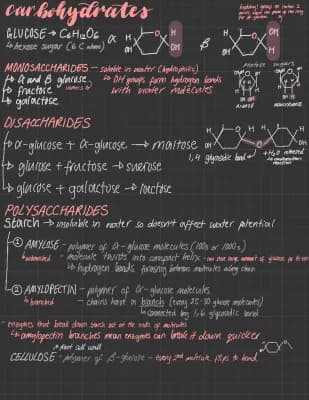 carbohydrates
GLUCOSE → C₆H₁₂O₆
↳ hexose sugar (6 C atoms)
α
β
H
OH
O
MONOSACCHARIDES - soluble in water (hydrophilic)
↳ α and β glucose
↳ fructose
↳ galactose
isomers
↳ OH groups form hydrogen bonds with water molecules
hexose sugars
DISACCHARIDES
↳ α-glucose + α-glucose → maltose
↳ glucose + fructose → sucrose
↳ glucose + galactose → lactose
1,4 glycosidic bond
+ H₂O removed
↳ condensation reaction
POLYSACCHARIDES
Starch → insoluble in water so doesn't affect water potential
① AMYLOSE - polymer of α-glucose molecules (100s or 1000s)
↳ unbranched
- molecule twists into compact helix
↳ hydrogen bonds forming between molecules along chain
② AMYLOPECTIN - polymer of α-glucose molecules
↳ branched
- chains have a branch (every 25-30 glucose molecules)
↳ connected by 1,6 glycosidic bond
- enzymes that break down starch act at the ends of molecules
↳ amylopectin branches mean enzymes can break it down quicker
↗ plant cell wall
CELLULOSE - polymer of β-glucose - every 2nd molecule flips to bond